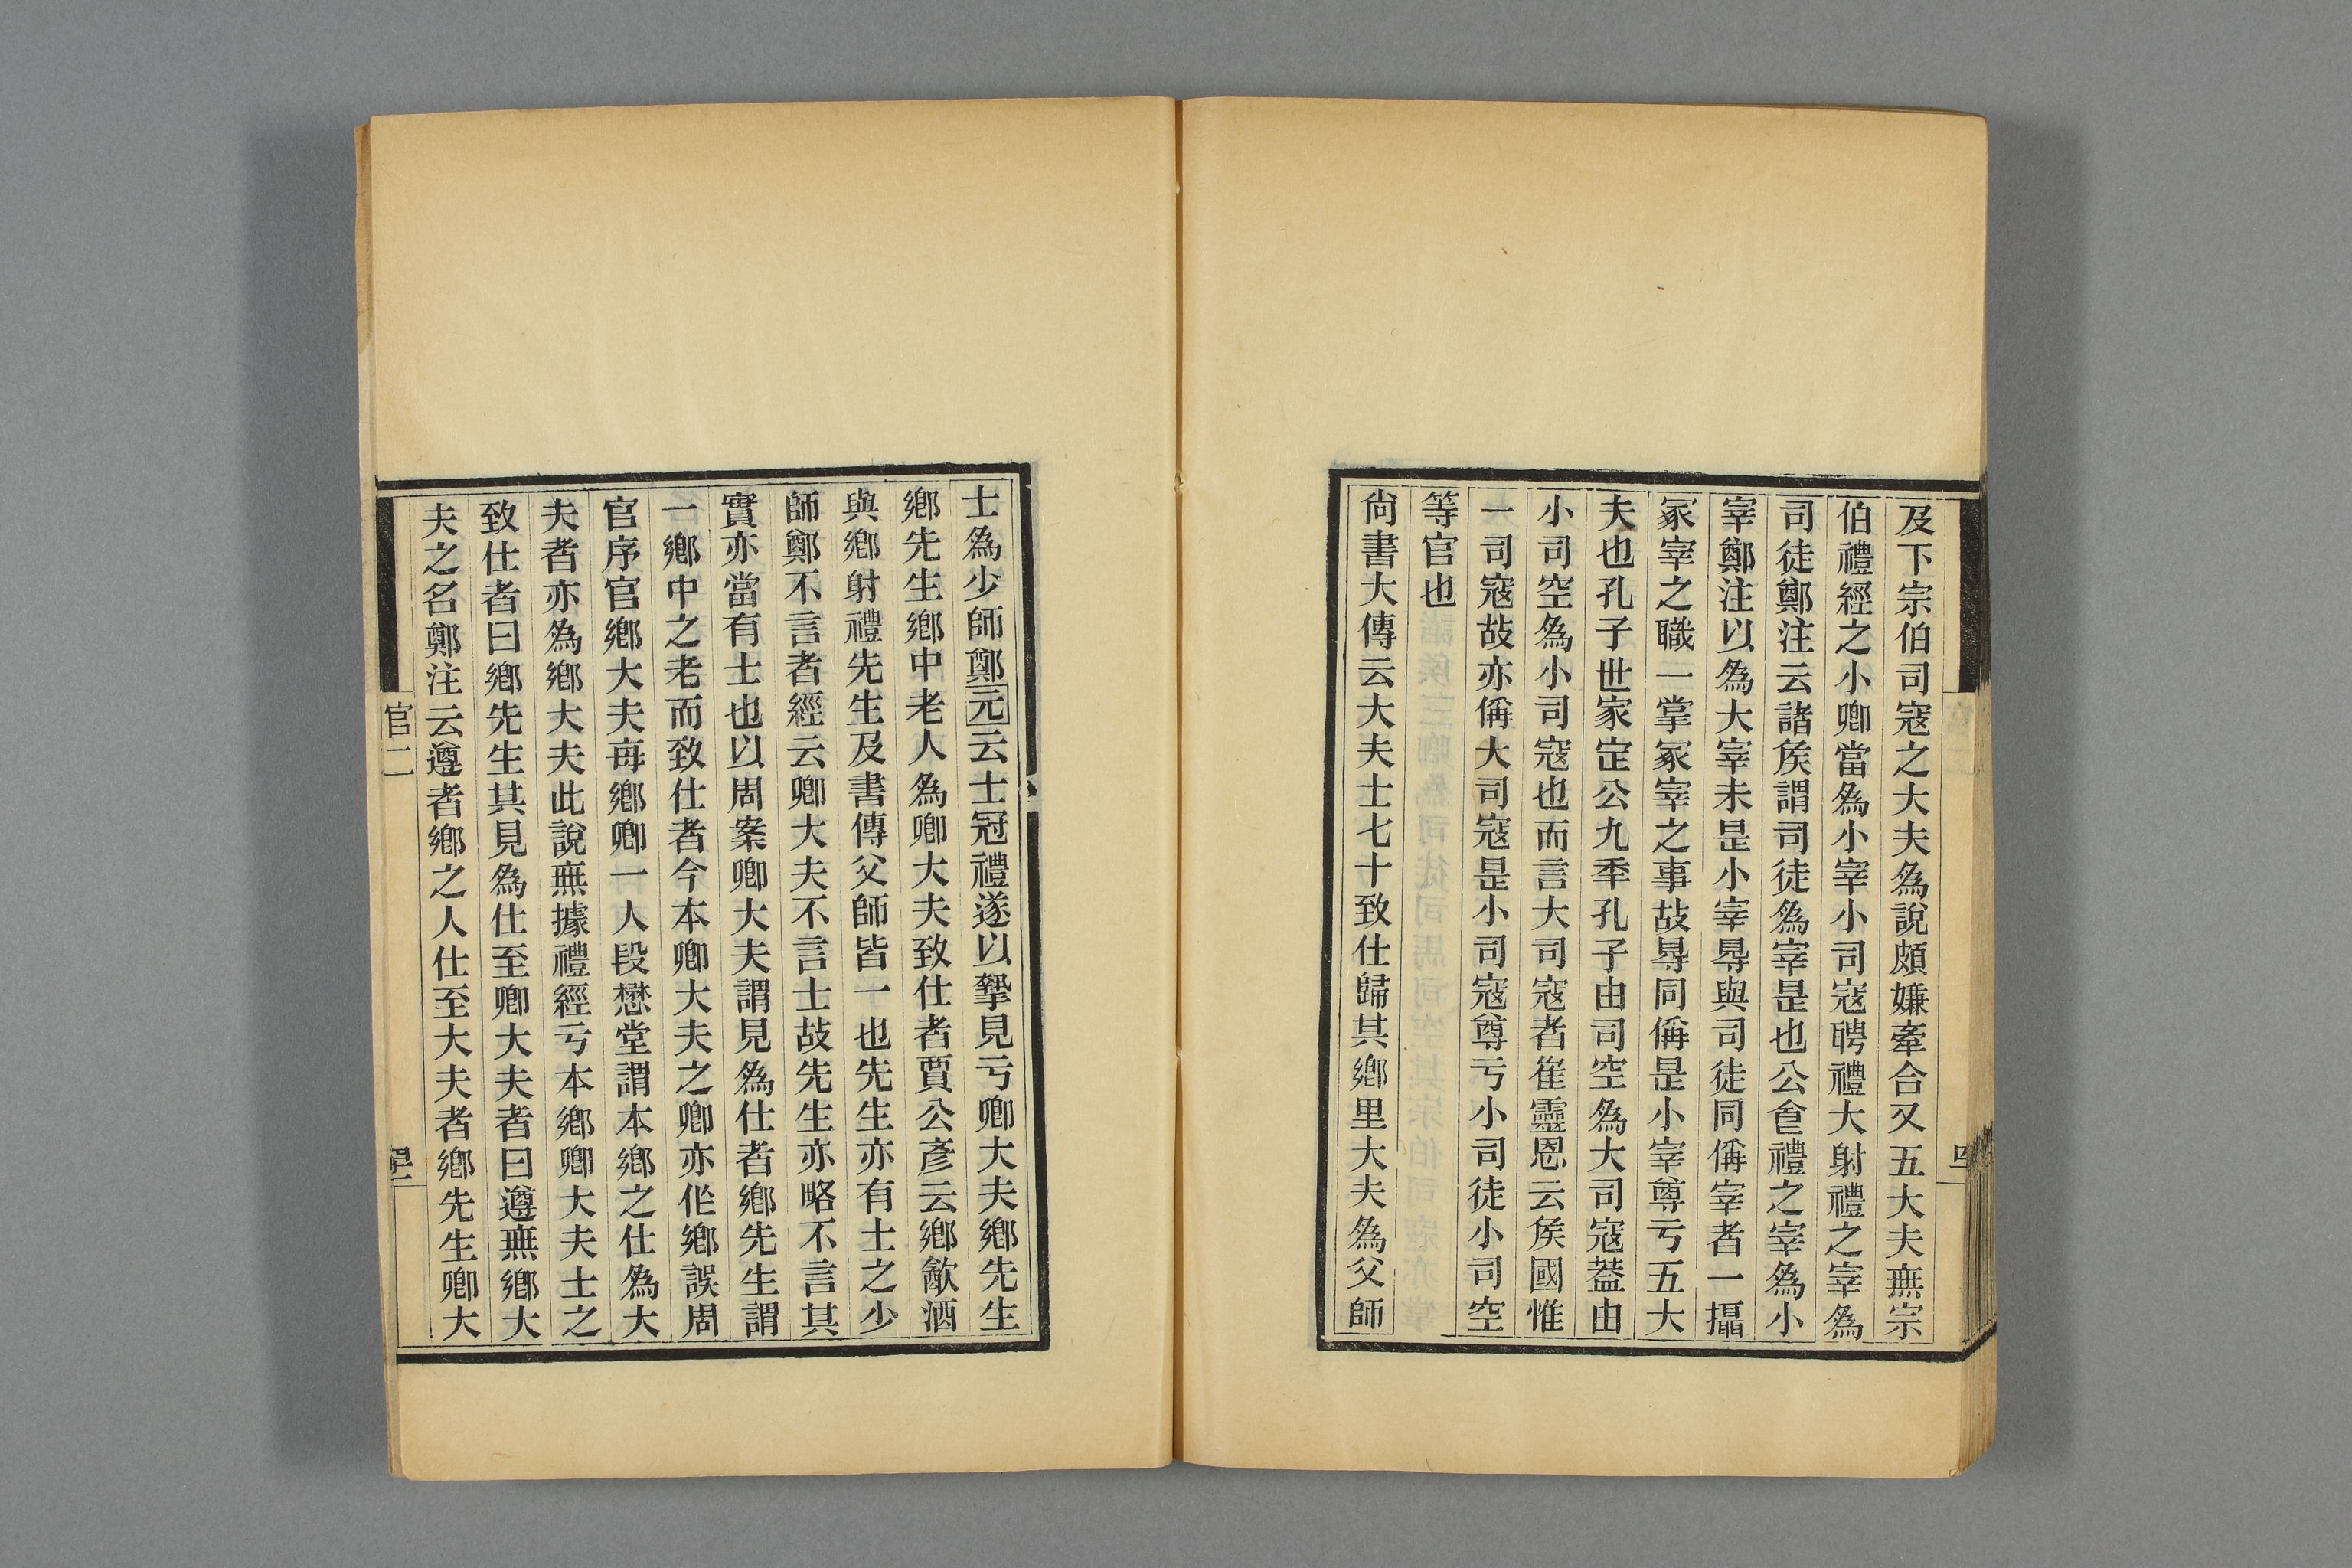 及下宗伯司寇之大夫為說頗嫌牽合又五大夫無宗
伯禮經之小卿當為小宰小司寇聘禮大射禮之宰為
司徒鄭注云諸矦謂司徒為宰是也公食禮之宰為小
宰鄭注以為大宰未是小宰㝵與司徒同偁宰者一攝
冢宰之職一掌冢宰之事故㝵同偁是小宰尊亏五大
夫也孔子世家定公九秊孔子由司空為大司寇葢由
小司空為小司寇也而言大司寇者崔靈恩云矦國惟
一司寇故亦偁大司寇是小司寇尊亏小司徒小司空
等官也
尙書大傳云大夫士七十致仕歸其鄉里大夫為父師
士為少師鄭元云士冠禮遂以摯見亏卿大夫鄉先生
鄉先生鄉中老人為卿大夫致仕者賈公彥云鄉歈酒
與鄉射禮先生及書傳父師皆一也先生亦有士之少
師鄭不言者經云卿大夫不言士故先生亦略不言其
實亦當有士也以周案卿大夫謂見為仕者鄉先生謂
一鄉中之老而致仕者今本卿大夫之卿亦作鄉誤周
官序官鄉大夫每鄉卿一人段懋堂謂本鄉之仕為大
夫者亦為鄉大夫此說無據禮經亏本鄉卿大夫士之
致仕者曰鄉先生其見為仕至卿大夫者曰遵無鄉大
夫之名鄭注云遵者鄉之人仕至大夫者鄉先生卿大
官二